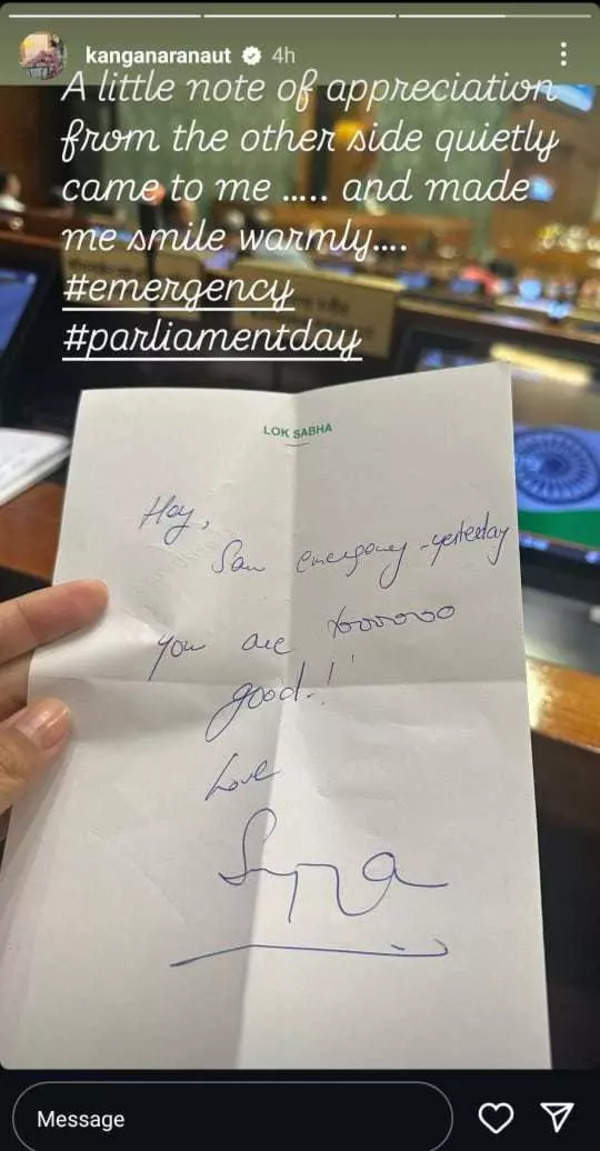 kanganaranaut 4h
A little note of appreciation
from the other side quietly
came to me ..... and made
me smile warmly....
#emergency
#parliamentday
LOK SABHA
Hey,
Saw emergency yesterday
you are
good.!
Love
Message